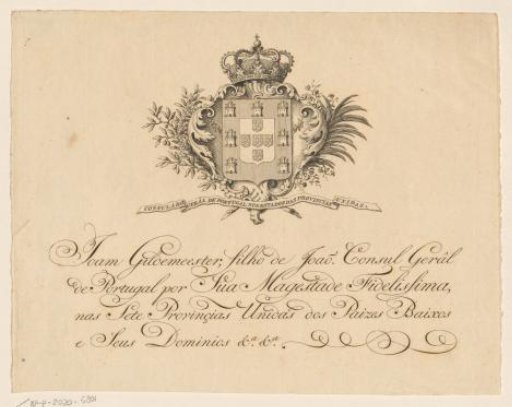 CONSULADO GERAL DE PORTUGAL NOS ESTADOS DAS PROVINCIAS UNIDAS
Joam Gildemeester, filho de Joaõ. Consul Gerâl
de Portugal por Sua Magestade Fidelissima,
nas Sete Provinçias Unidas dos Paizes Baixos
e Seus Dominios &.ª &.ª